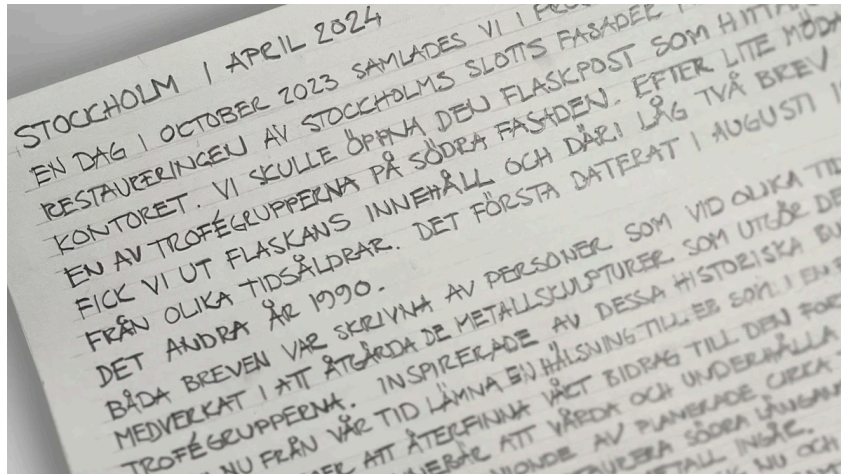 STOCKHOLM 1 APRIL 2024
EN DAG I OCTOBER 2023 SAMLADES VI I
RESTAURERINGEN AV STOCKHOLMS SLOTTS FASADER
KONTORET. VI SKULLE ÖPPNA DEN FLASKPOST SOM HITTATS
EN AV TROFÉGRUPPERNA PÅ SÖDRA FASADEN. EFTER LITE MÖDA
FICK VI UT FLASKANS INNEHÅLL OCH DÄRI LÅG TVÅ BREV
FRÅN OLIKA TIDSÅLDRAR. DET FÖRSTA DATERAT I AUGUSTI
DET ANDRA ÅR 1990.
BÅDA BREVEN VAR SKRIVNA AV PERSONER SOM VID OLIKA
MEDVERKAT I ATT ÅTGÄRDA DE METALLSKULPTURER SOM UTGÖR
TROFÉGRUPPERNA. INSPIRERADE AV DESSA HISTORISKA
NU FRÅN VÅR TID LÄMNA EN HÄLSNING TILL ER SOM I EN
ATT ÅTERFINNA VÅRT BIDRAG TILL DEN
ATT VÅRDA OCH UNDERHÅLLA
AV PLANERADE CIRKA
SÖDRA
INGÅR.
NU OCH